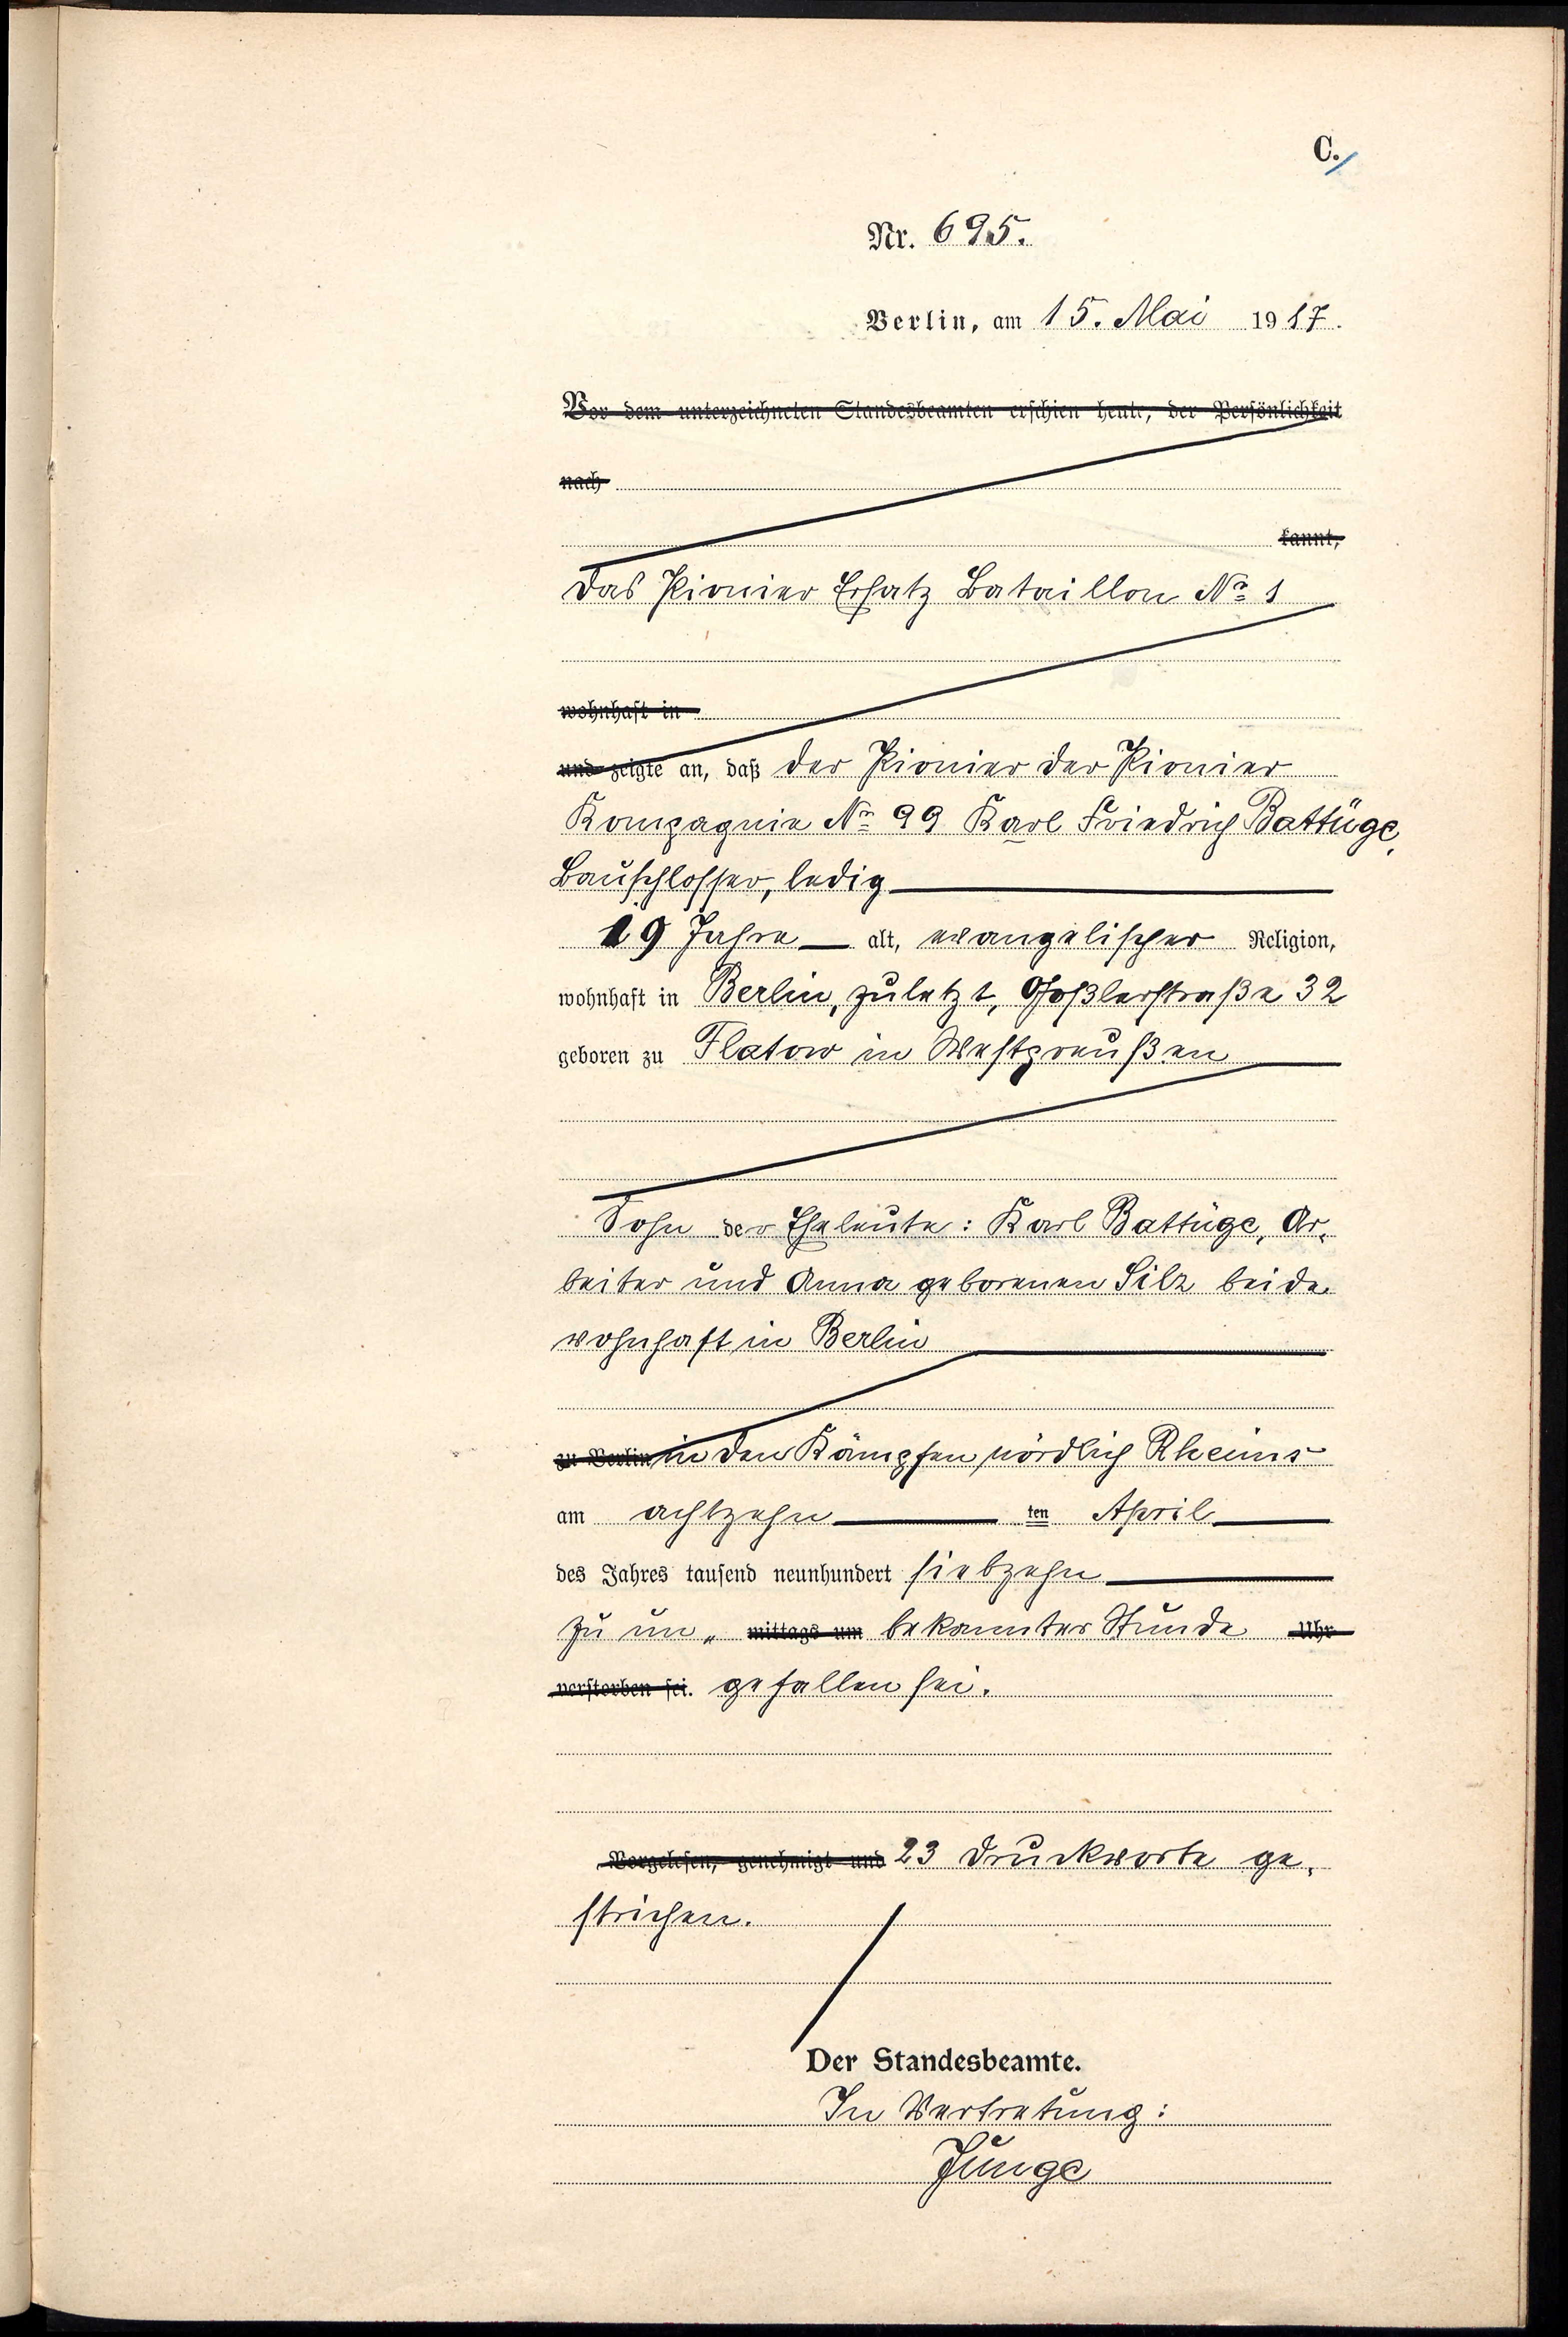 C.
Nr. 695.
Berlin, am 15. Mai 1917.
Vor dem unterzeichneten Standesbeamten erschien heute, der Persönlichkeit
nach
kannt,
Das Pionier Ersatz Bataillon No 1
wohnhaft in
und zeigte an, daß der Pionier der Pionier
Kompagnie No 99 Karl Friedrich Battüge,
Bauschlosser, ledig
19 Jahre alt, evangelischer Religion,
wohnhaft in Berlin, zuletzt, Goßlerstraße 32
geboren zu Flatow in Westpreußen
Sohn der Eheleute: Karl Battüge, Ar-
beiter und Anna geborenen Silz beide
wohnhaft in Berlin
zu Berlin in den Kämpfen nördlich Rheims
am achtzehn ten April
des Jahres tausend neunhundert siebzehn
zu un- mittags um bekannter Stunde Uhr
verstorben sei. gefallen sei.
Vorgelesen, genehmigt und 23 Druckworte ge-
strichen.
Der Standesbeamte.
In Vertretung:
Junge